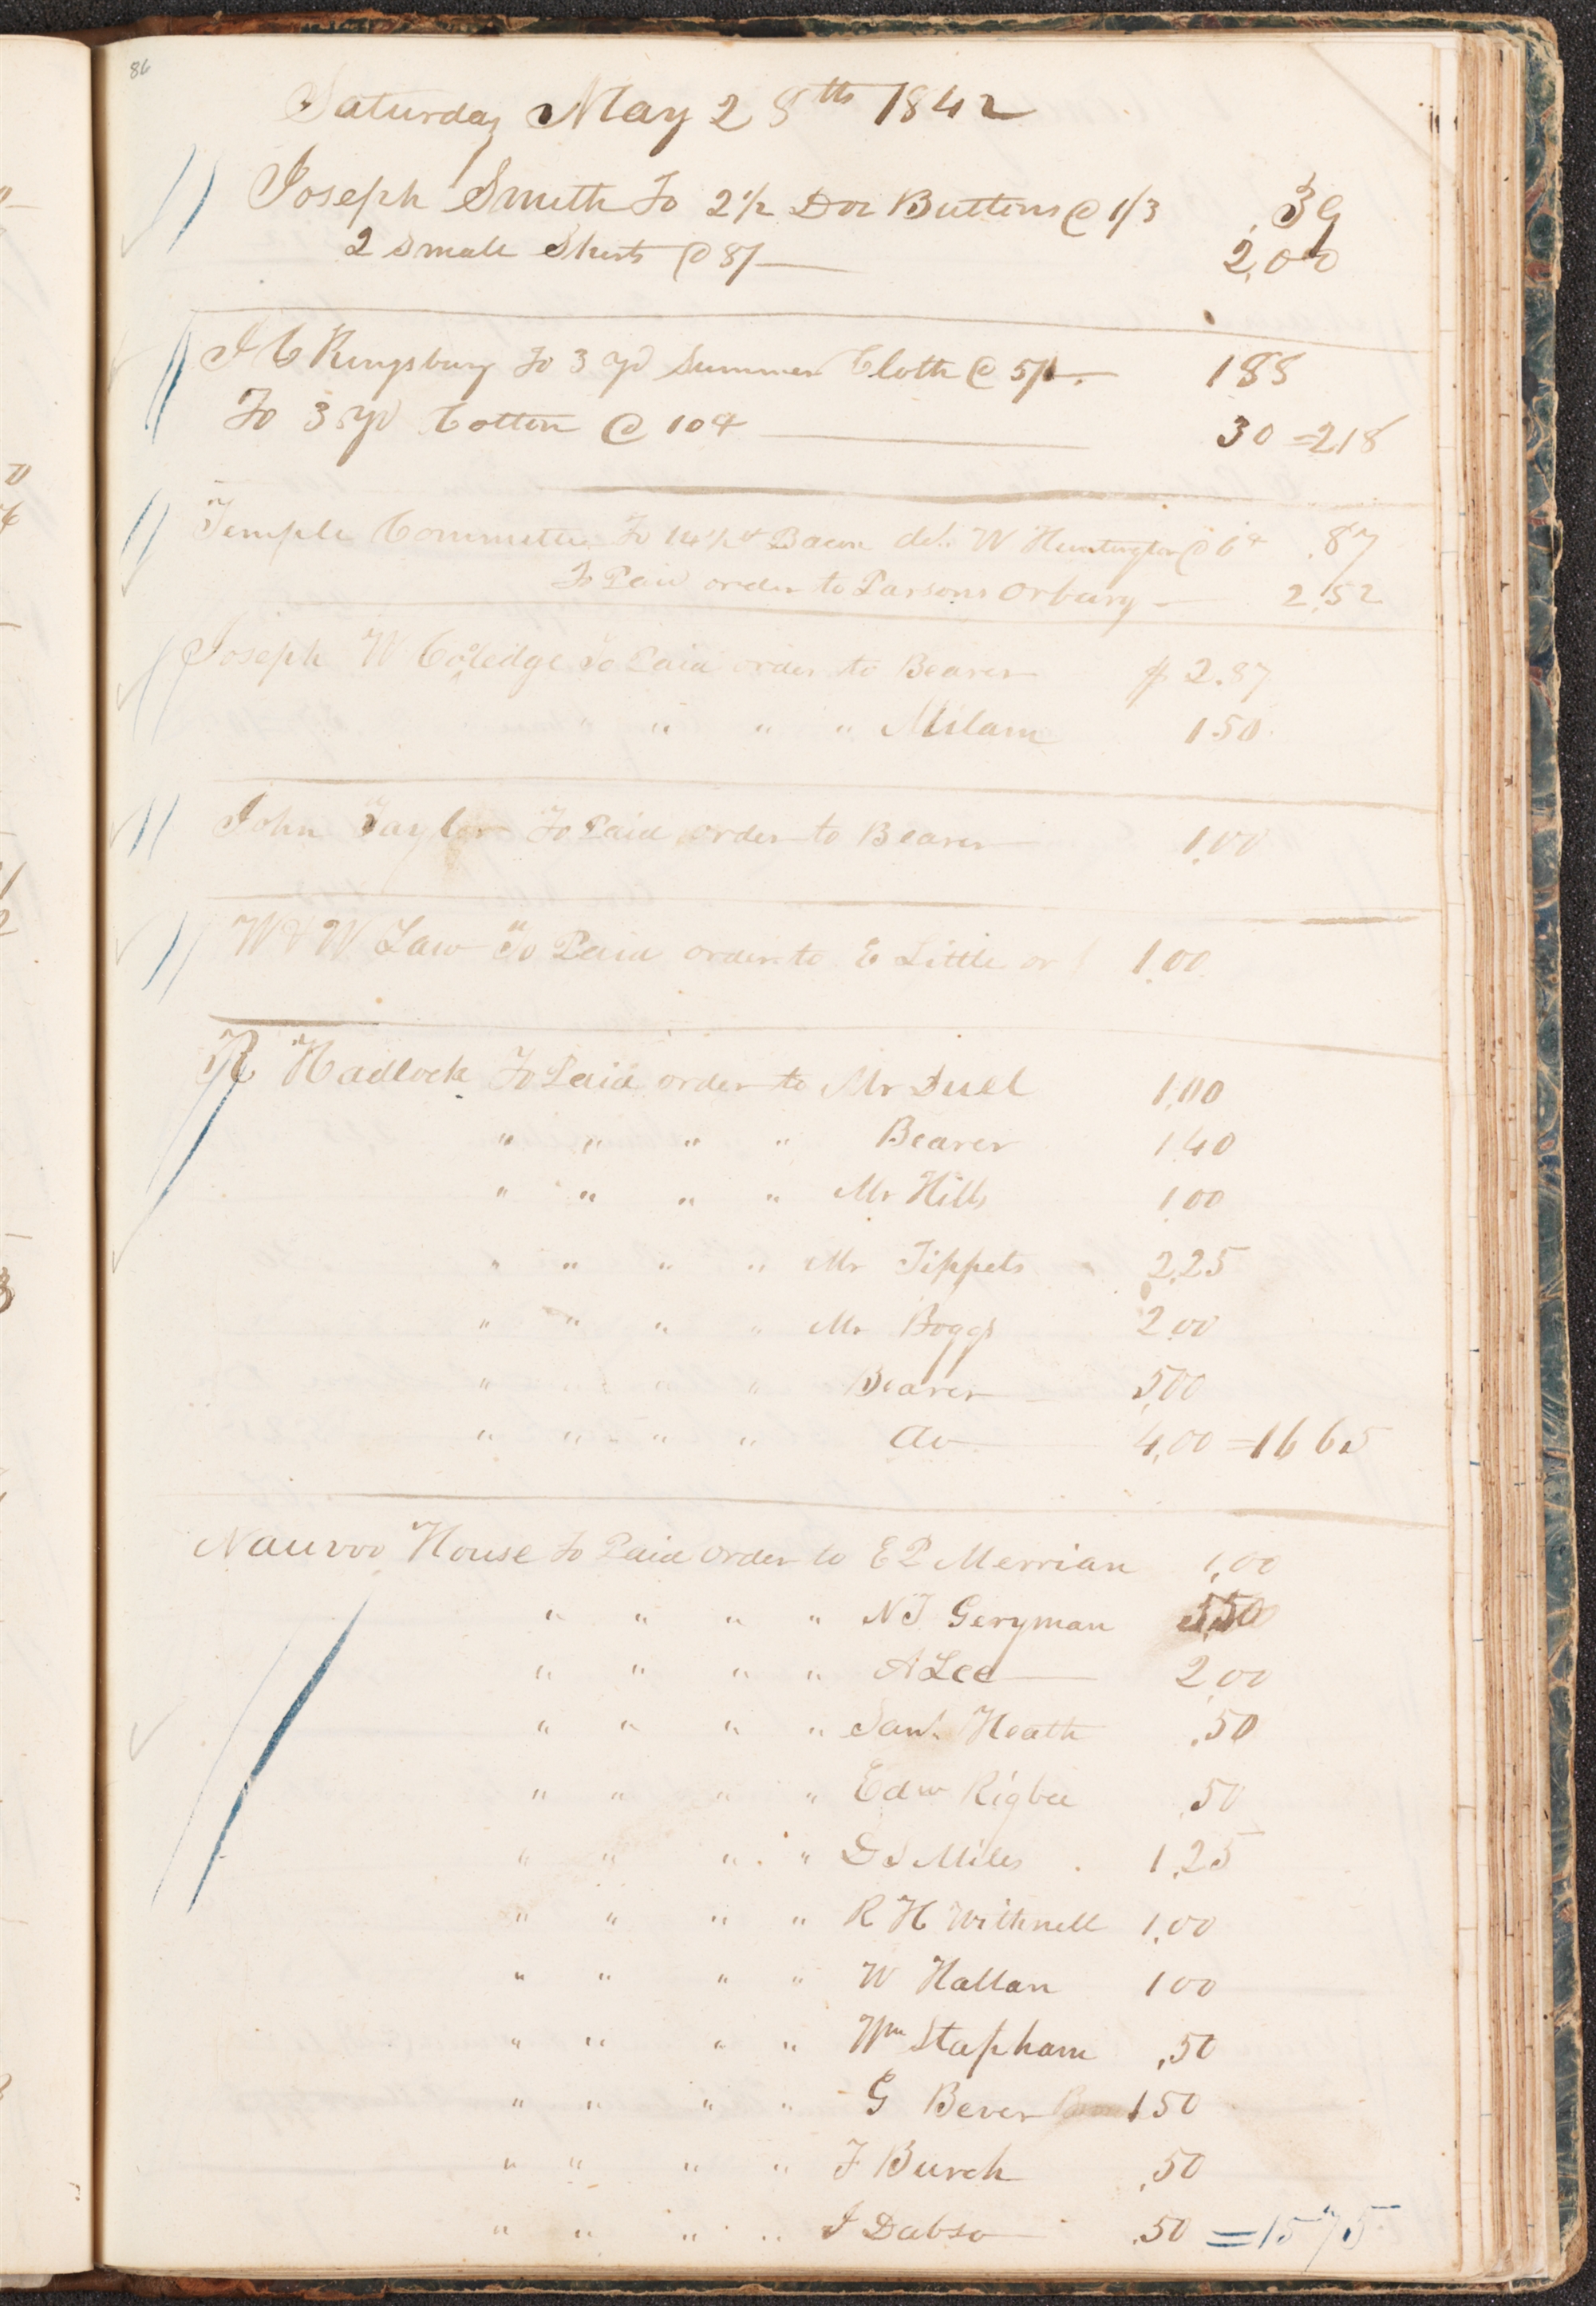 86
Saturday May 28th 1842
Joseph Smith To 2 1/2 Doz Buttons @ 1/3 .39
2 Small Shirts @ 8/ 2,00
J C Kingsbury To 3 yd Summer Cloth @ 5/ 188
To 3 yd Cotton @ 10 30 =218
Temple Committee To 14 1/2 Bacon del. W Huntington @ 6 .87
To Paid order to Parsons Orbury 2.52
Joseph W Coledge To Paid order to Bearer $ 2.87
" " " " Milam 1.50
John Taylor To Paid order to Bearer 1,00
W & W Law To Paid order to E Little or 1.00
R Hadlock To Paid order to Mr Duel 1.00
" " " " Bearer 1.40
" " " " Mr Hills 1.00
" " " " Mr Tippets 2.25
" " " " Mr Boggs 2.00
" " " " Bearer 5,00
" " " " do 4,00 =1665
Nauvoo House To Paid order to E P Merrian 1,00
" " " " N J Geryman 5.50
" " " " A Lee 2.00
" " " " Saml. Heath .50
" " " " Edw Rigbee .50
" " " " D S Miles 1.25
" " " " R H Withnell 1,00
" " " " W Hallan 1 00
" " " " Wm Stapham ,50
" " " " G Bever 1 50
" " " " F Burch .50
" " " " J Dabso .50 =1575